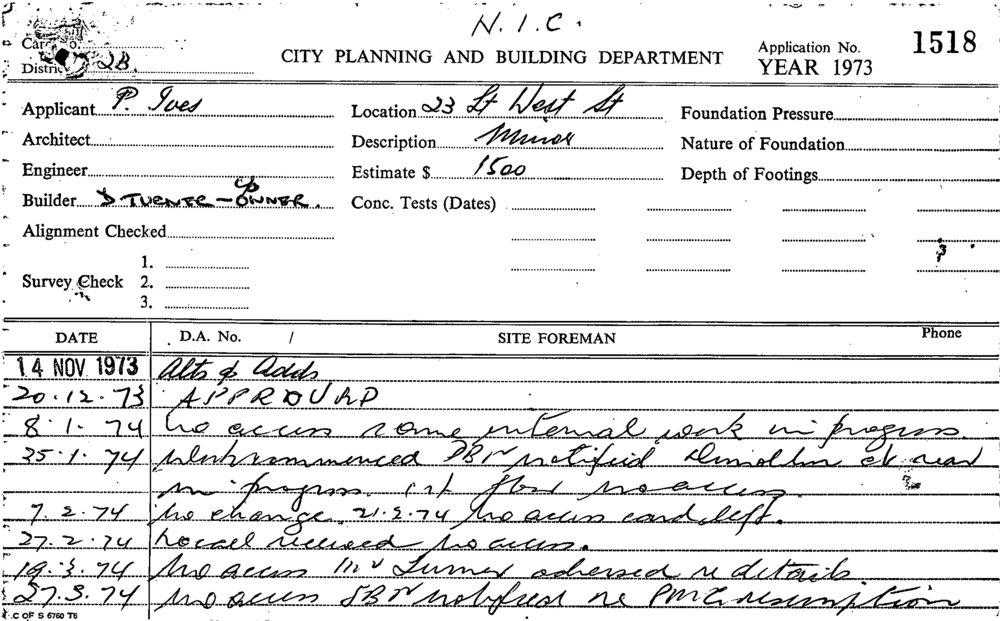 N.I.C.
Card No.
District 2B.
CITY PLANNING AND BUILDING DEPARTMENT
Application No. 1518
YEAR 1973
Applicant P. Ives
Location 23 Lt West St
Foundation Pressure
Architect
Description Minor
Nature of Foundation
Engineer
Estimate $ 1500
Depth of Footings
Builder D TURNER - OWNER.
Conc. Tests (Dates)
Alignment Checked
Survey Check 1.
2.
3.
DATE D.A. No. / SITE FOREMAN Phone
14 NOV. 1973 Alts & Adds
20.12.73 APPROVED
8.1.74 No access some internal work in progress.
25.1.74 Work commenced notified at rear
in progress. 1st floor no access.
7.2.74 No change. 21.2.74 No access card left.
27.2.74 No call received no access.
19.3.74 No access Mr Turner re details
27.3.74 No access notified re resumption
C OF S 5760 T6